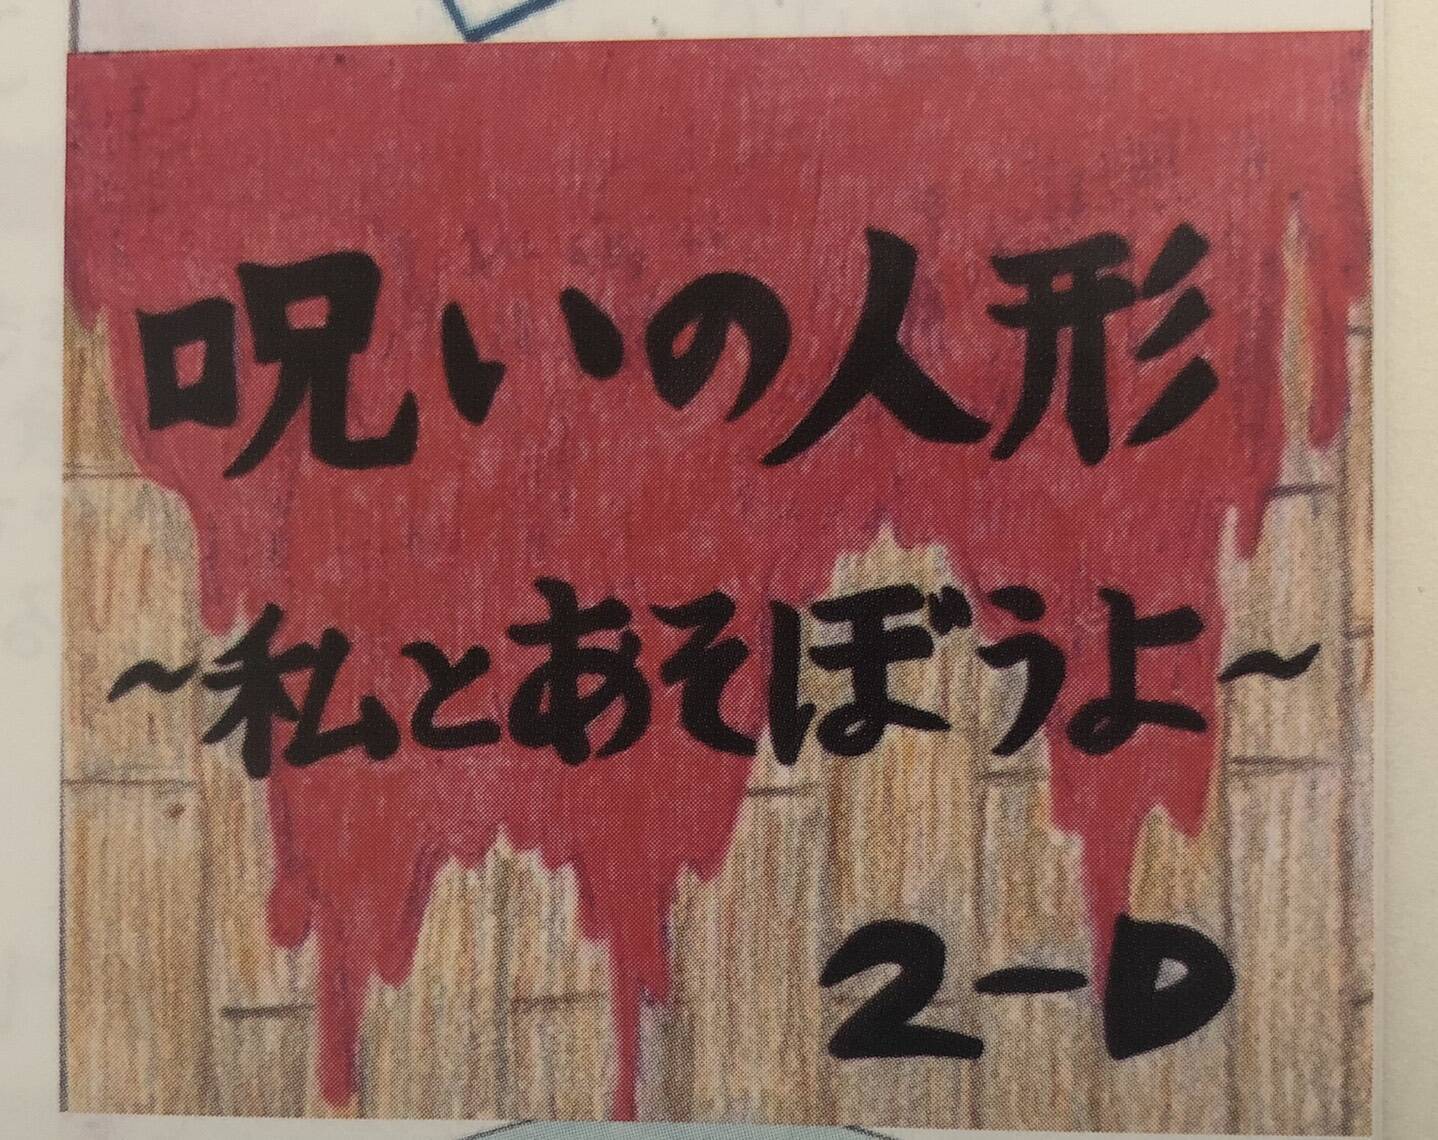 呪いの人形
~私とあそぼうよ~
2-D